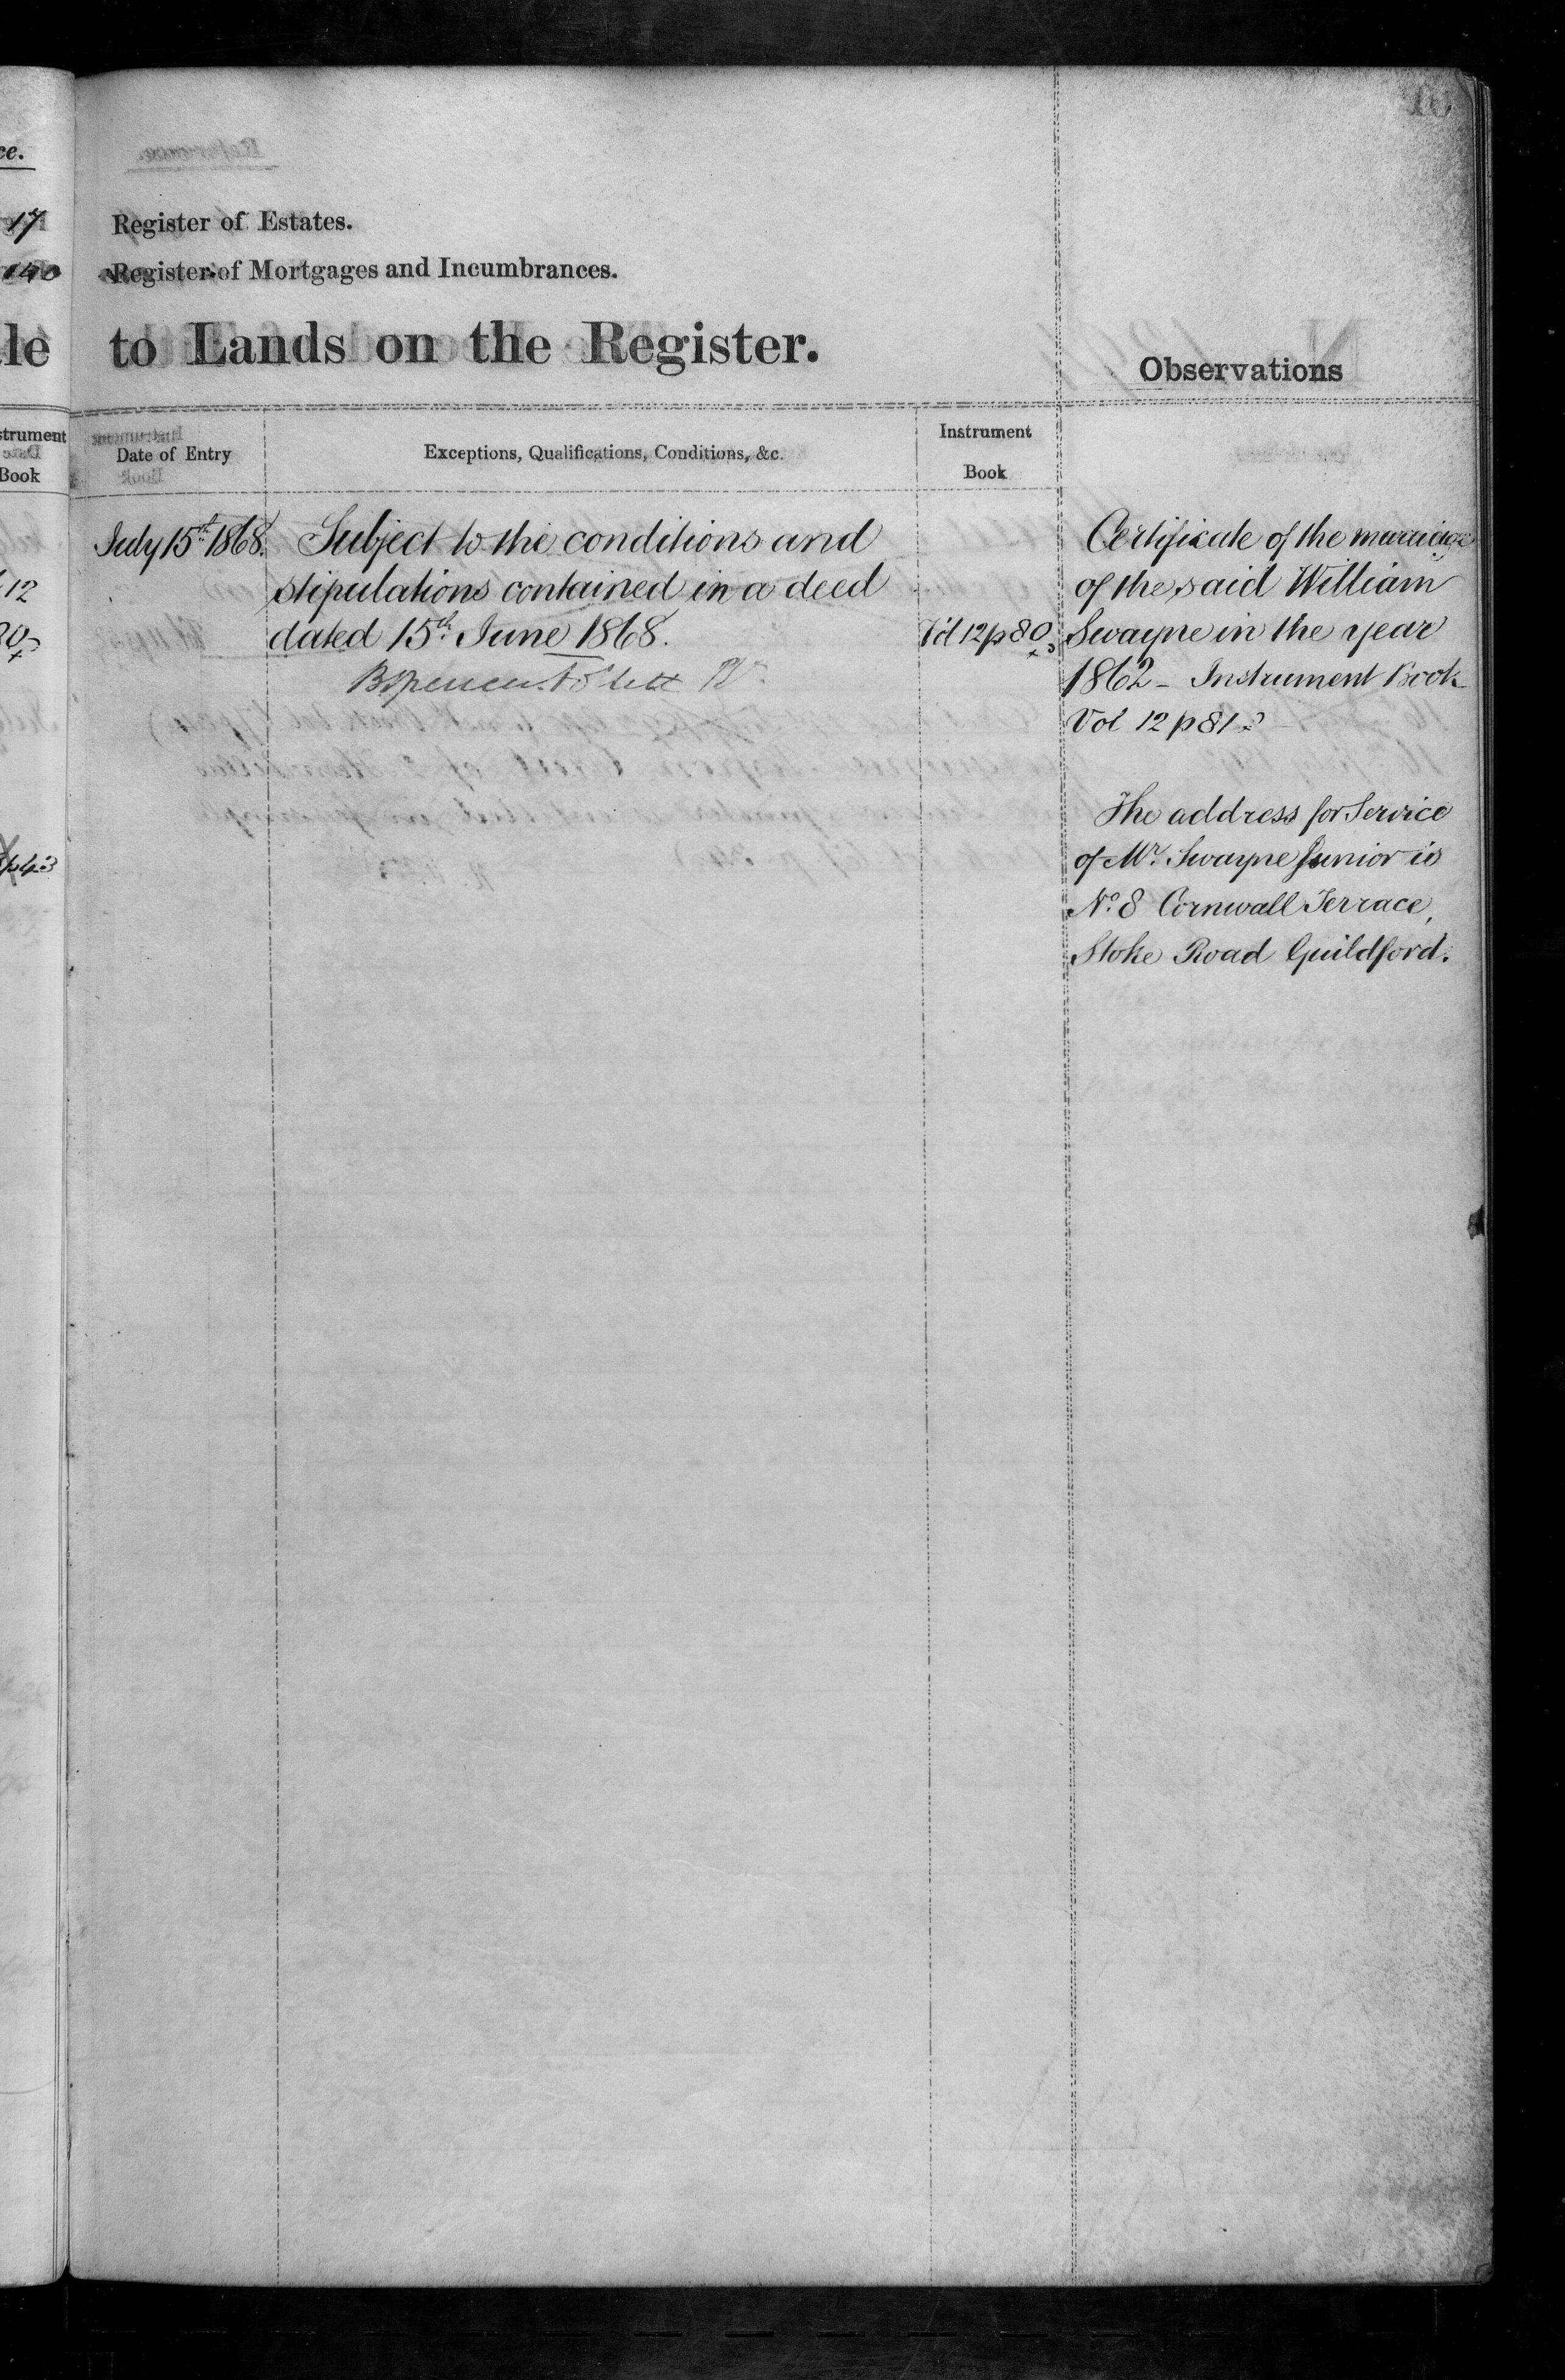 ce.
17
Register of Estates.
140
Register of Mortgages and Incumbrances.
le
to Lands on the Register.
Observations
strument
Book
Date of Entry
Exceptions, Qualifications, Conditions, &c.
Instrument
Book
July 15th 1868.
Subject to the conditions and
stipulations contained in a deed
dated 15th June 1868.
Vol 12 p 80
12
p43
Certificate of the marriage
of the said William
Swayne in the year
1862 - Instrument Book
Vol 12 p 81
The address for Service
of Mr. Swayne Junior is
No. 8 Cornwall Terrace,
Stoke Road Guildford.